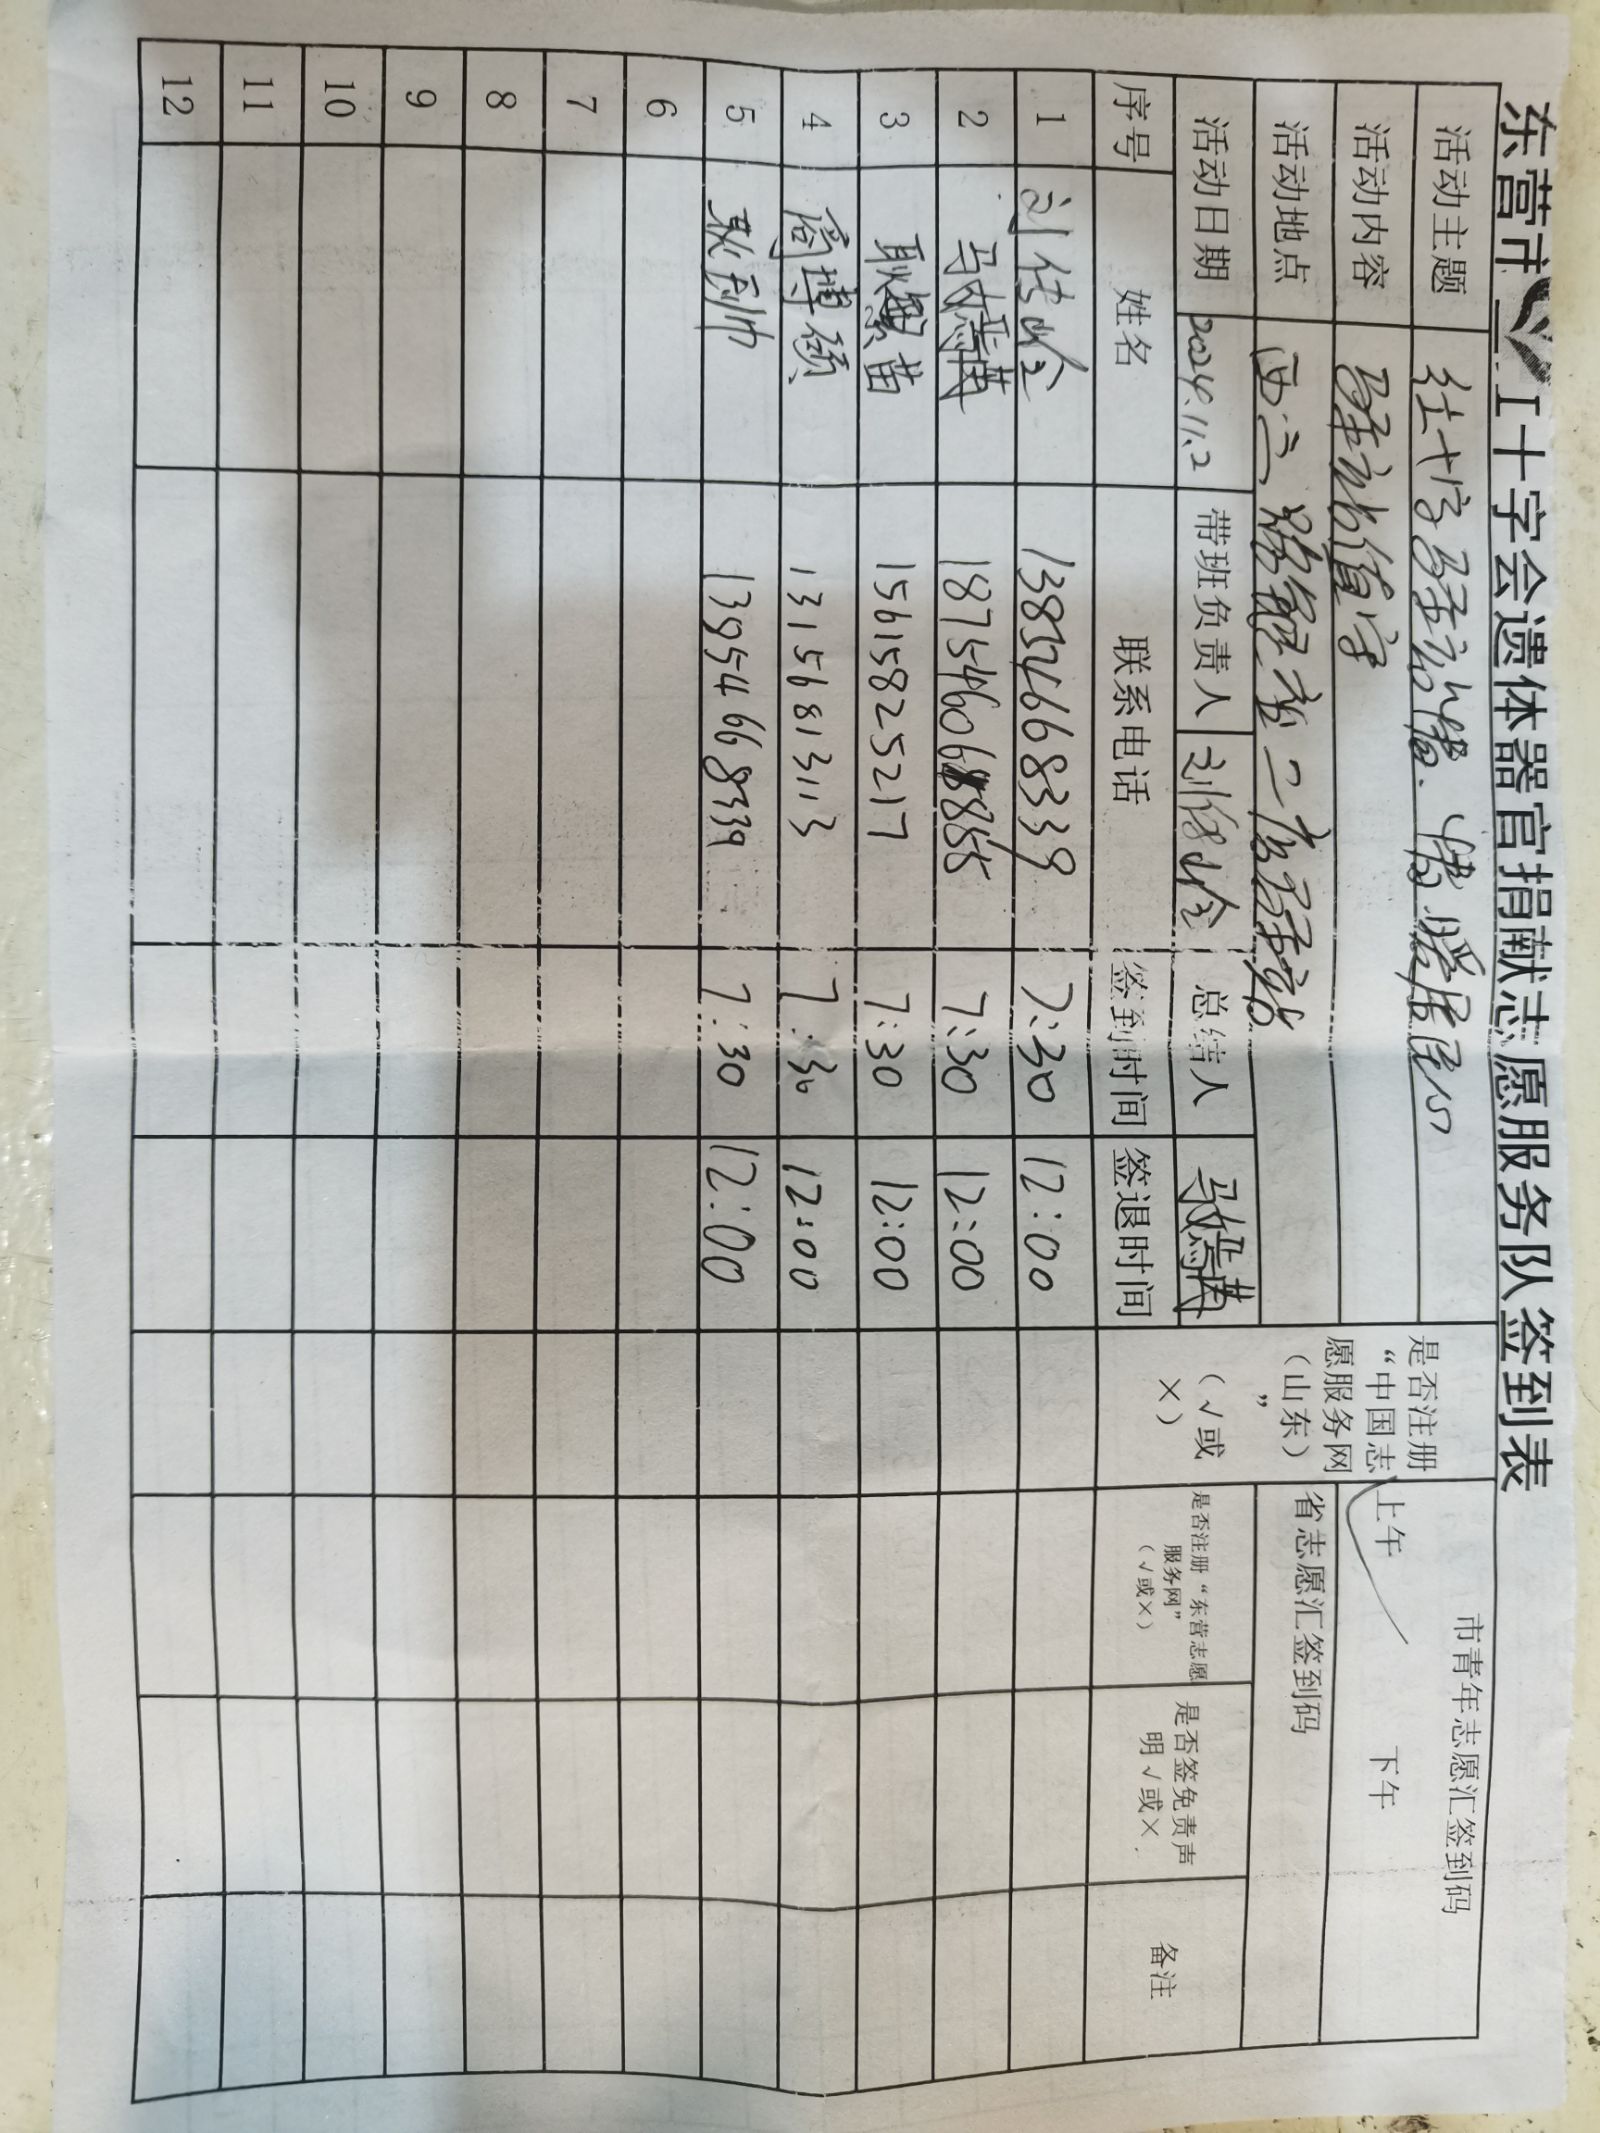 东营市 工十字会遗体器官捐献志愿服务队签到表
活动主题 红十字驿站情.情暖居民心
市青年志愿汇签到码
活动内容 驿站值守
上午 下午
活动地点 西三路 二 驿站
省志愿汇签到码
活动日期 2024.11.2 带班负责人 刘传 总结人 马
是否注册
“中国志
愿服务网
(山东)
”
(√或
×)
是否注册“东营志愿
服务网”
(√或×)
是否签免责声
明√或×.
备注
序号 姓名 联系电话 签到时间 签退时间
1 刘传 7:30 12:00
2 马 7:30 12:00
3 耿 苗 15615825217 7:30 12:00
4 商博硕 13156813113 7:30 12:00
5 耿 帅 13954668339 7:30 12:00
6
7
8
9
10
11
12